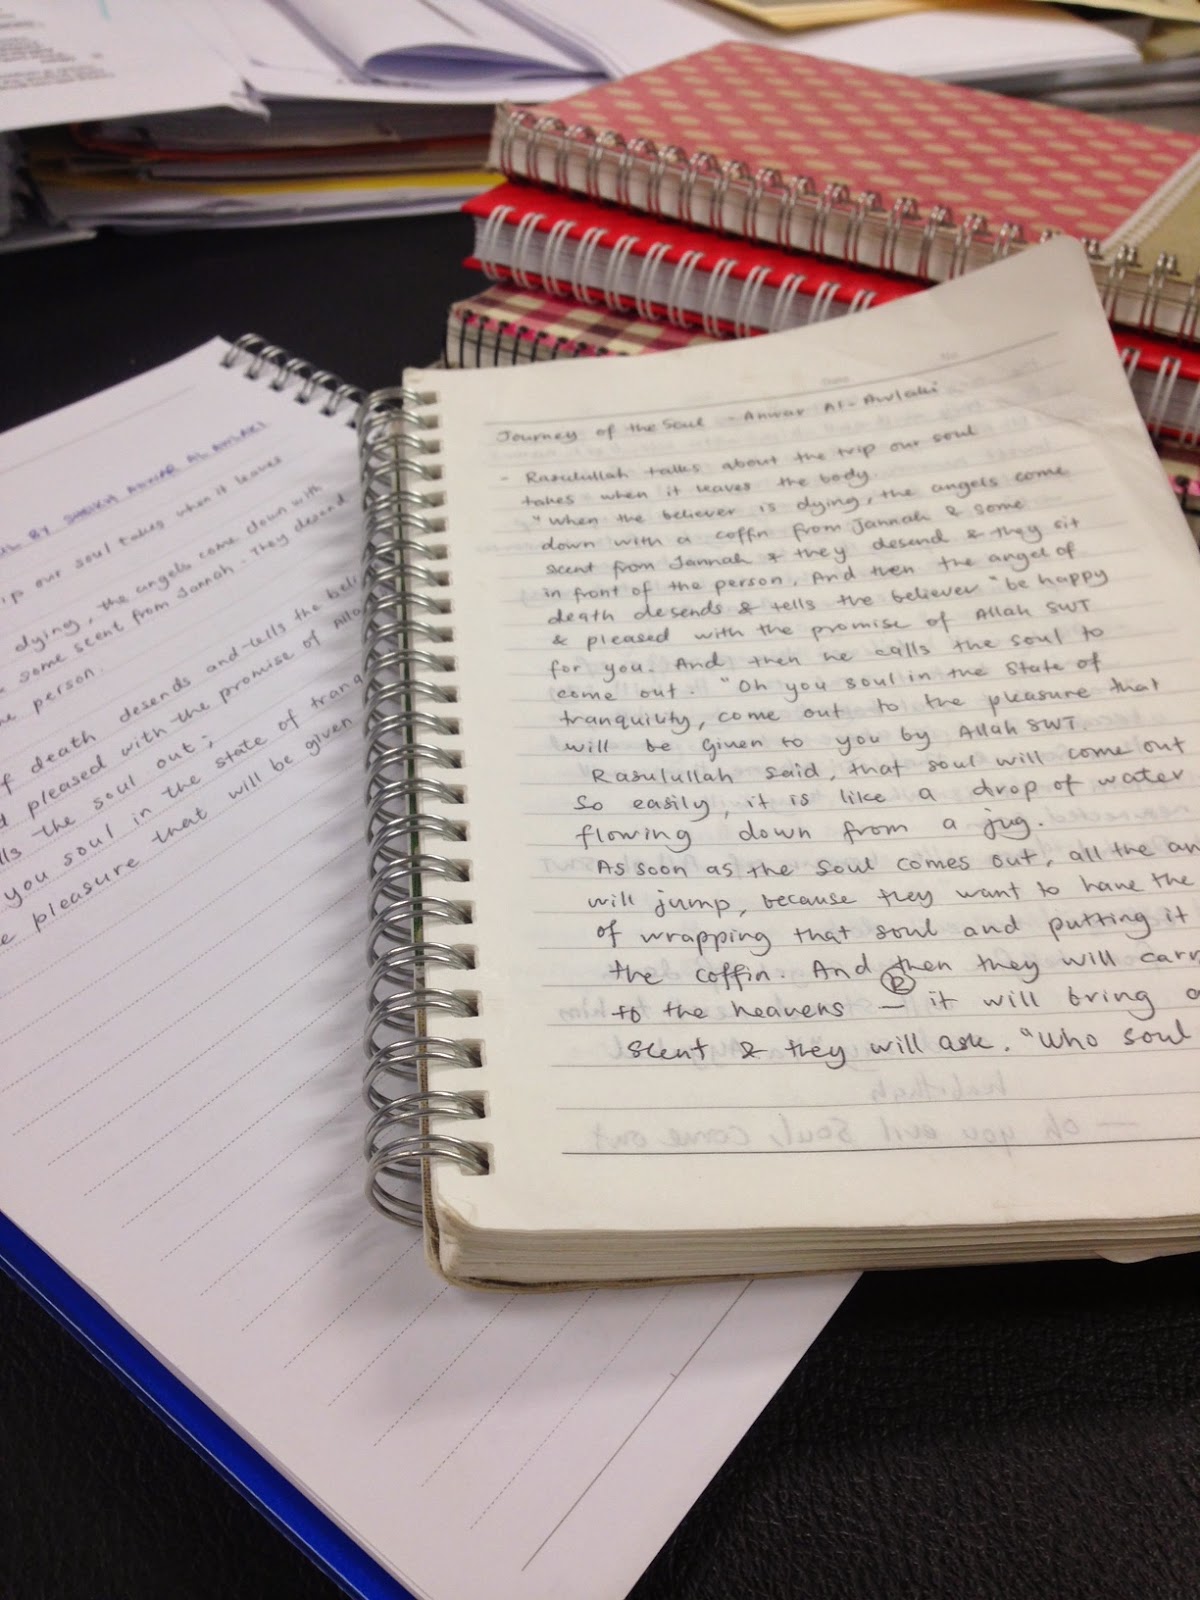 BY SHEIKH ANWAR AL AWLAKI
our soul takes when it leaves
dying, the angels come down with
some scent from Jannah. They desend
person.
death desends and tells the beli
pleased with the promise of Alla
the soul out;
you soul in the state of tranq
pleasure that will be given
Journey of the Soul - Anwar Al-Awlaki
- Rasulullah talks about the trip our soul
takes when it leaves the body.
"When the believer is dying, the angels come
down with a coffin from Jannah & some
scent from Jannah & they desend & they sit
in front of the person. And then the angel of
death desends & tells the believer "be happy
& pleased with the promise of Allah SWT
for you. And then he calls the soul to
come out. "Oh you soul in the state of
tranquility, come out to the pleasure that
will be given to you by Allah SWT.
Rasulullah said, that soul will come out
so easily, it is like a drop of water
flowing down from a jug.
As soon as the soul comes out, all the an
will jump, because they want to have the
of wrapping that soul and putting it
the coffin. And then they will carr
to the heavens — it will bring a
scent & they will ask. "Who soul